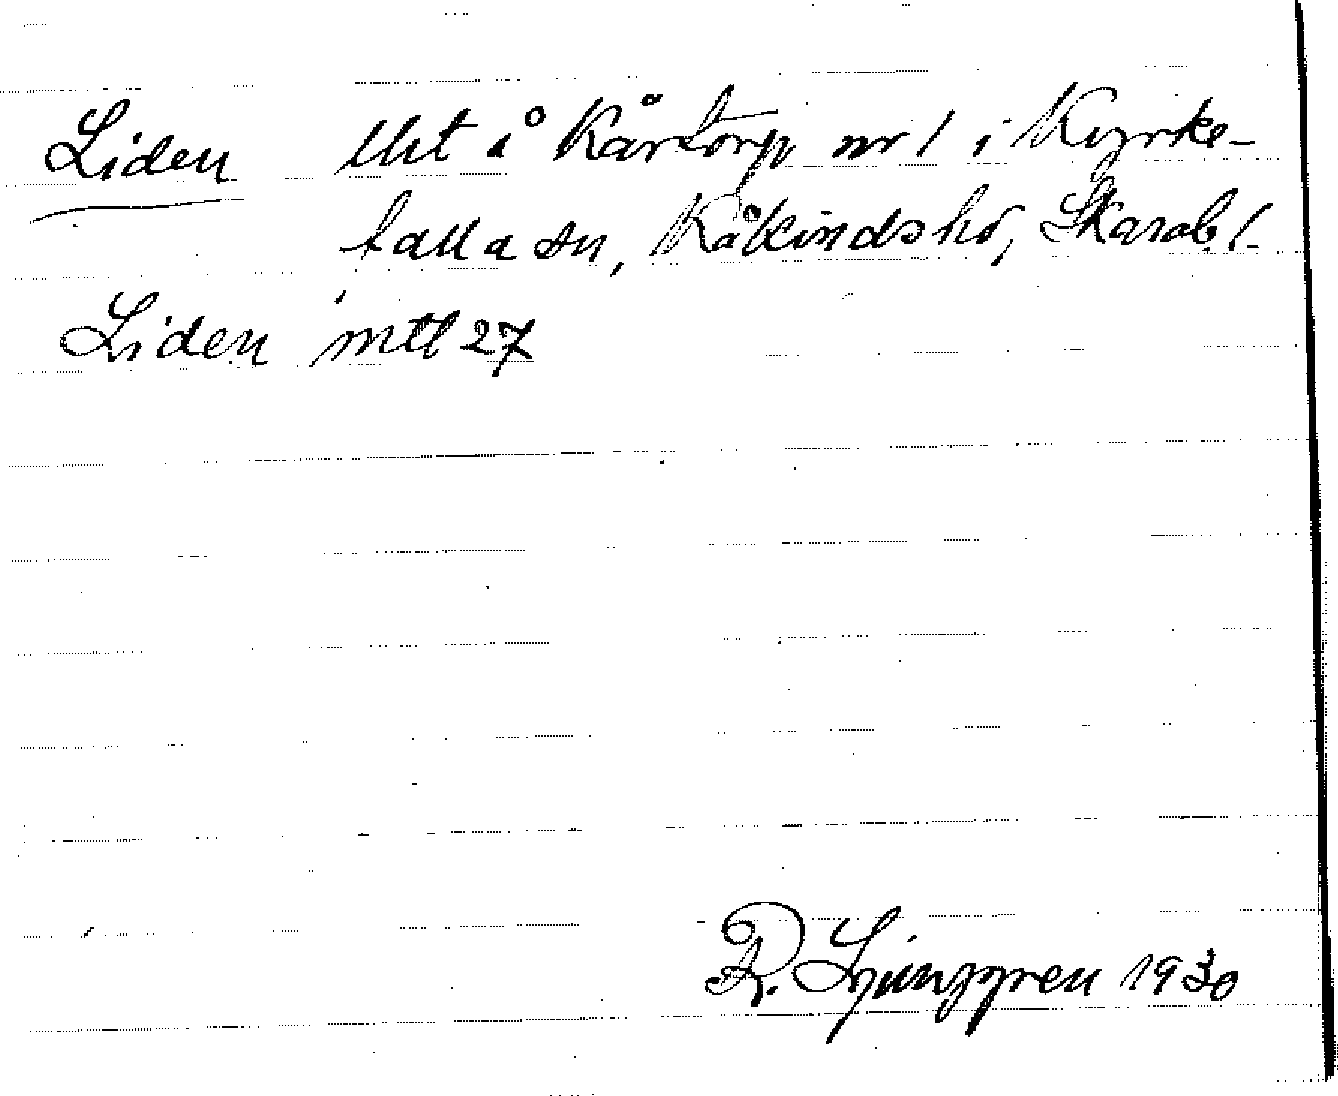 Liden lht å Kårtorp nr 1 i Kyrke-
falla sn, Kåkinds hd, Skarab. l.
Liden mtl 27
R. Ljunggren 1930